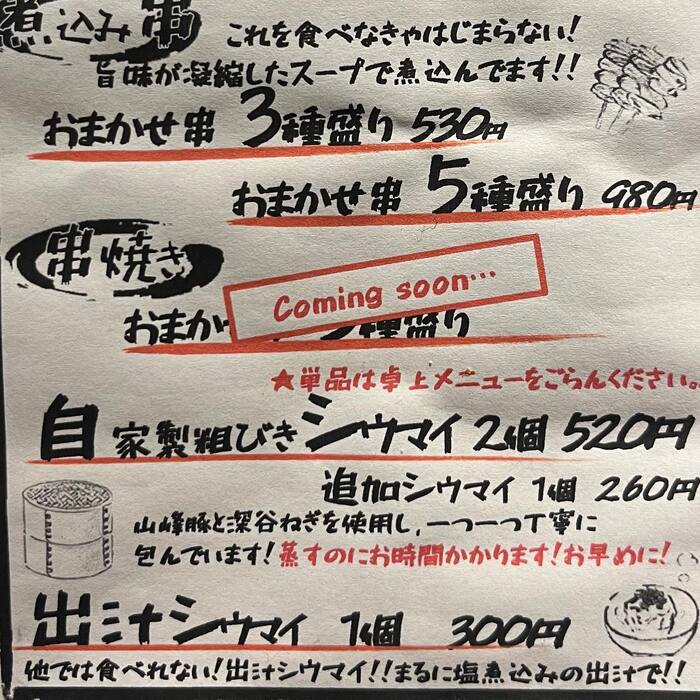 煮込み串
これを食べなきゃはじまらない!
旨味が凝縮したスープで煮込んでます!!
おまかせ串 3種盛り 530円
おまかせ串 5種盛り 980円
串焼き
Coming soon...
おまか 種盛り
★単品は卓上メニューをごらんください。
自家製粗びきシウマイ 2個 520円
追加シウマイ 1個 260円
山峰豚と深谷ねぎを使用し、一つ一つ丁寧に
包んでいます!蒸すのにお時間かかります!お早めに!
出汁シウマイ 1個 300円
他では食べれない!出汁シウマイ!!まるに塩煮込みの出汁で!!